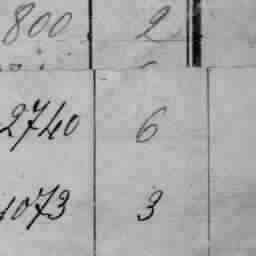 800 2
2740 6
1073 3